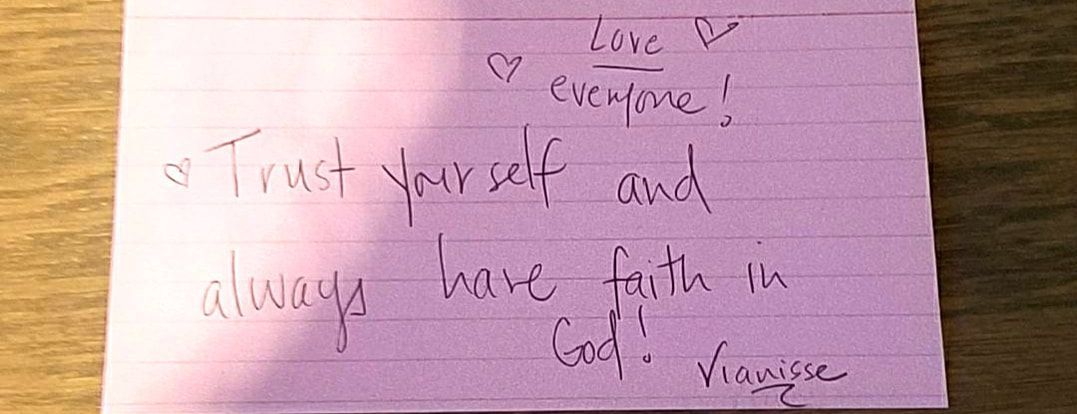 Love
everyone!
Trust yourself and
always have faith in
God!
Vianisse